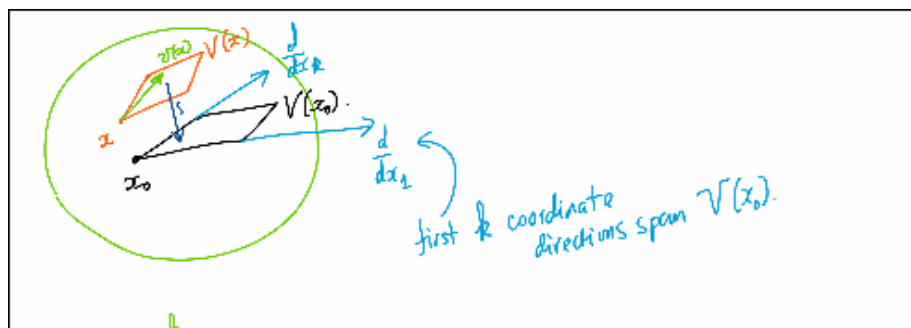 v(x) V(x)
d/dx_k
V(x₀).
x
x₀
d/dx₁
first k coordinate
directions span V(x₀).